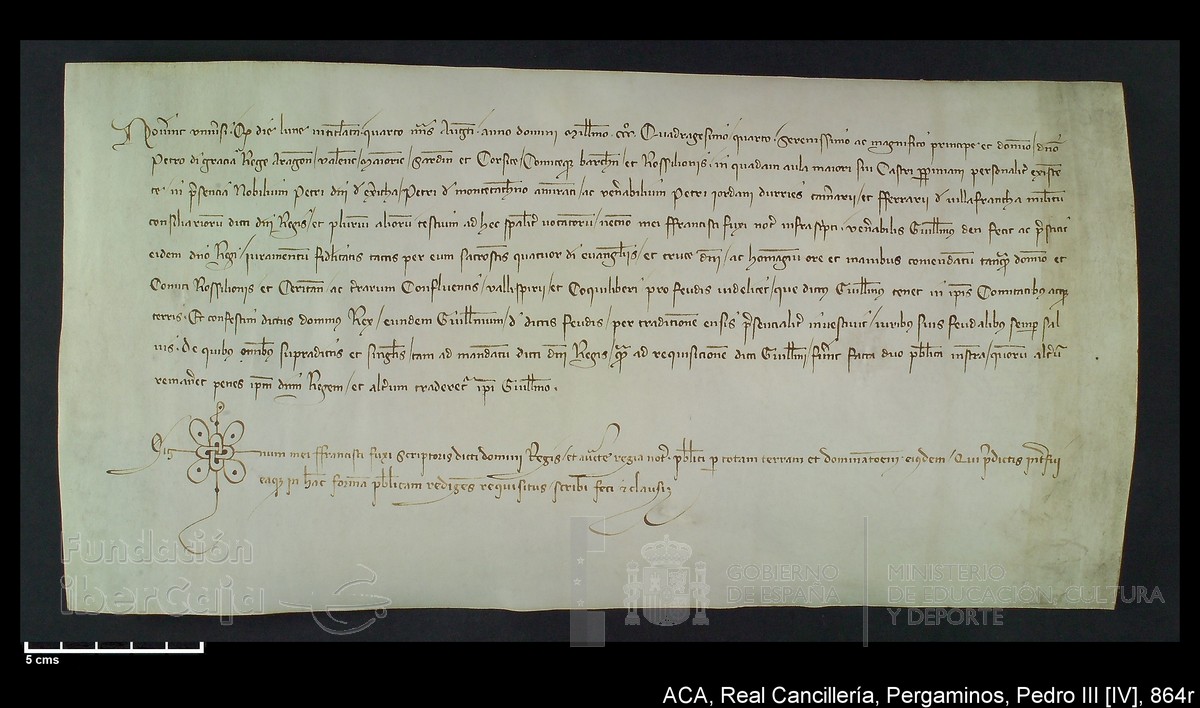 Noverint universi. Qd die lune intitulata quarto mens Augusti. anno domini Millmo. ccco. Quadragesimo quarto. Serenissimo ac magnifico principe et domino / dno
Petro di gracia Rege Aragon / Valencie / Maiorice / Sardin et Corsice / Comiteqz barchn / et Rossilionis. in quadam aula maiori sui Castri Perpiniani personalit existen
te. in psencia Nobilium Petri dni d Exericha / Petri d montecatheno / ac venabilium Petri iordani durries camarii / et fferrarii d villafrancha militum
consiliariorum dicti dni Regis / et plurium aliorum testium ad hec spalit vocatorum / necnon mei ffrancisci fuxi not infrascpti. venabilis Guillmus den fecit ac pstitit
eidem dno Regi / iuramentum fidelitatis tactis per eum sacrostis quatuor di evangeliis / et cruce dni / ac homagium ore et manibus comendatum tanqm domino et
Comiti Rossilionis et Ceritan ac terrarum Confluentis / vallispirii / et Coquiliberi pro feudis videlicet / que dictus Guillmus tenet in ipis Comitatibus atqz
terris. Et confestim dictus dominus Rex / eundem Guillmum / d dictis feudis / per tradicionem ensis psencialit investivit / iuribus suis feudalibus semper sal
vis. De quibus omibus supradictis et singlis / tam ad mandatum dicti dni Regis / qm ad requisicionem dicti Guillmi / fuernt facta duo publica instra / quorum altum
remanet penes ipm dnm Regem / et altum traderet ipi Guillmo.
Sig num mei ffrancisci fuxi Scriptoris dicti domini Regis / et aucte regia not. publici p totam terram et dominatoem eiusdem / Qui pdictis intfui
eaqz in hac forma publicam redigens requisitus / scribi feci et clausi
Fundación
iberCaja
GOBIERNO
DE ESPAÑA
MINISTERIO
DE EDUCACIÓN, CULTURA
Y DEPORTE
5 cms
ACA, Real Cancillería, Pergaminos, Pedro III [IV], 864r